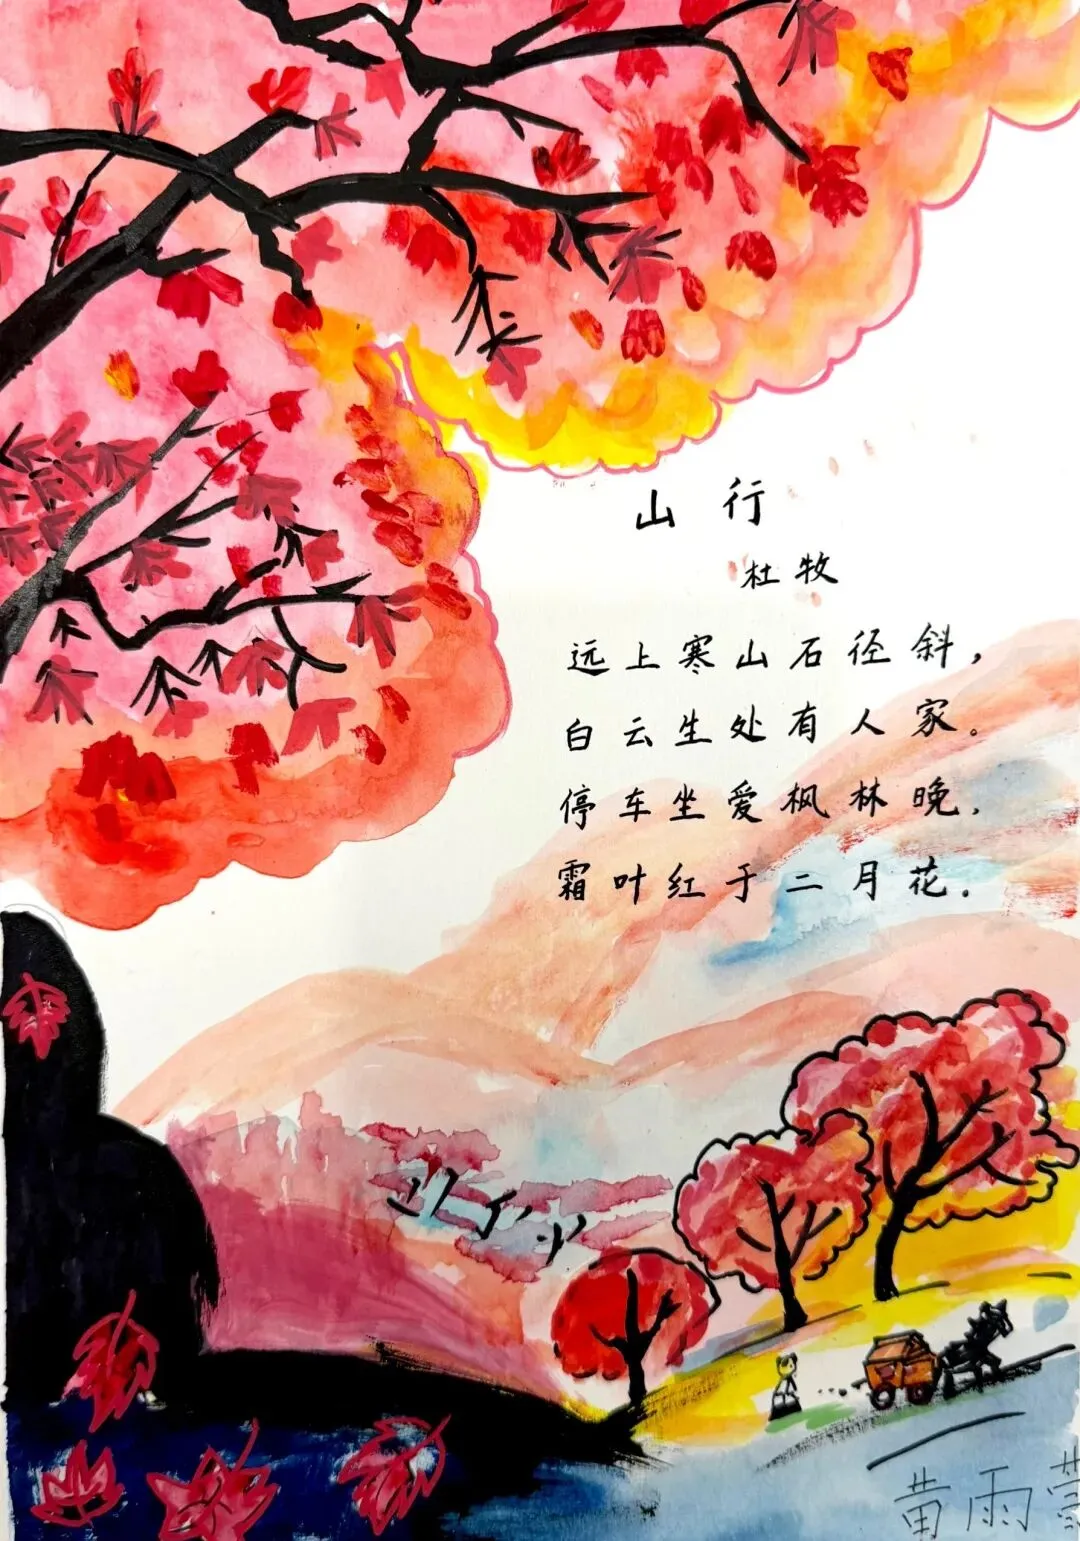 山行
杜牧
远上寒山石径斜，
白云生处有人家。
停车坐爱枫林晚，
霜叶红于二月花.
黄雨